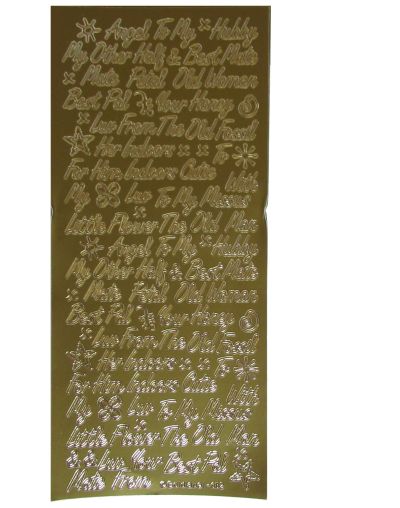 Angel To My Hubby
My Other Half & Best Mate
Mate Petal Old Woman
Best Pal Your Honey
Luv From The Old Fossil
Her Indoors To
For Him Indoors Cutie With
My Luv To My Missus
Little Flower The Old Man
Angel To My Hubby
My Other Half & Best Mate
Mate Petal Old Woman
Best Pal Your Honey
Luv From The Old Fossil
Her Indoors To
For Him Indoors Cutie With
My Luv To My Missus
Little Flower The Old Man
Luv Your Best Pal
Mate From